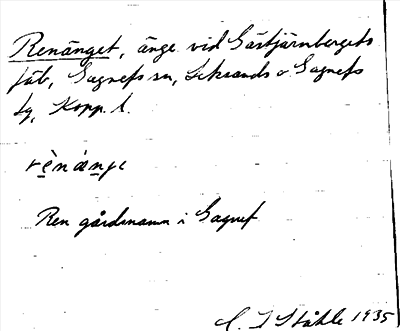 Renänget, änge vid Gästjärnbergets
fäb, Gagnefs sn, Leksands o Gagnefs
tg, Kopp. l.
rènànge
Ren gårdsnamn i Gagnef
C. I Ståhle 1935